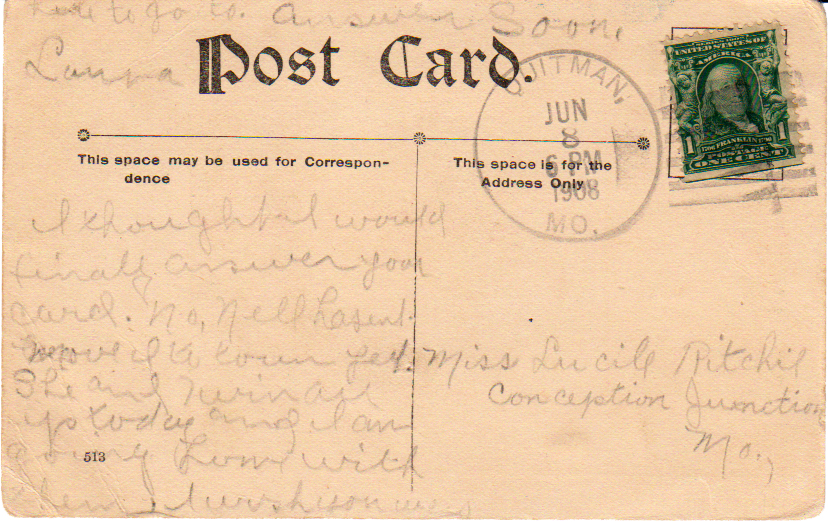 here to go to. Answer Soon.
Laura
Post Card.
QUITMAN,
JUN
8
6 PM
1908
MO.
UNITED STATES OF
AMERICA
1 1
FRANKLIN
POSTAGE
ONE CENT
This space may be used for Correspon-
dence
This space is for the
Address Only
I thought I would
finaly answer your
card. No, Nell hasent
moved to town yet.
She and Twin are
up today and I am
going home with
them. I
Miss Lucile Ritchie
Conception Junction
Mo.,
513